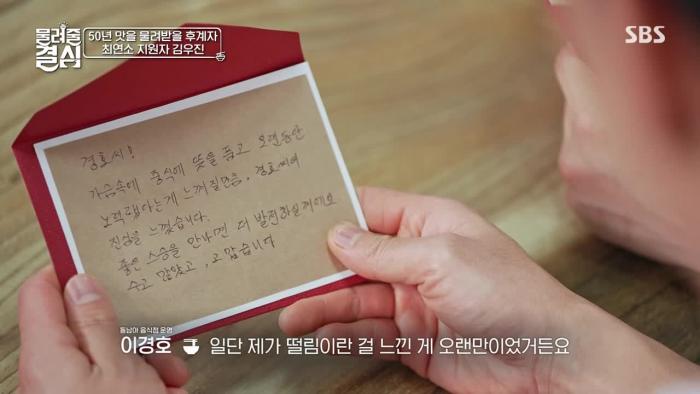 물려줄
결심
50년 맛을 물려받을 후계자
최연소 지원자 김우진
SBS
경호씨!
가슴속에 중식에 뜻을 품고 오랜동안
노력했다는게 느껴질만큼, 경호씨의
진심을 느꼈습니다.
좋은 스승을 만나면 더 발전하실꺼에요
수고 많았고, 고맙습니다
동남아 음식점 운영
이경호
일단 제가 떨림이란 걸 느낀 게 오랜만이었거든요